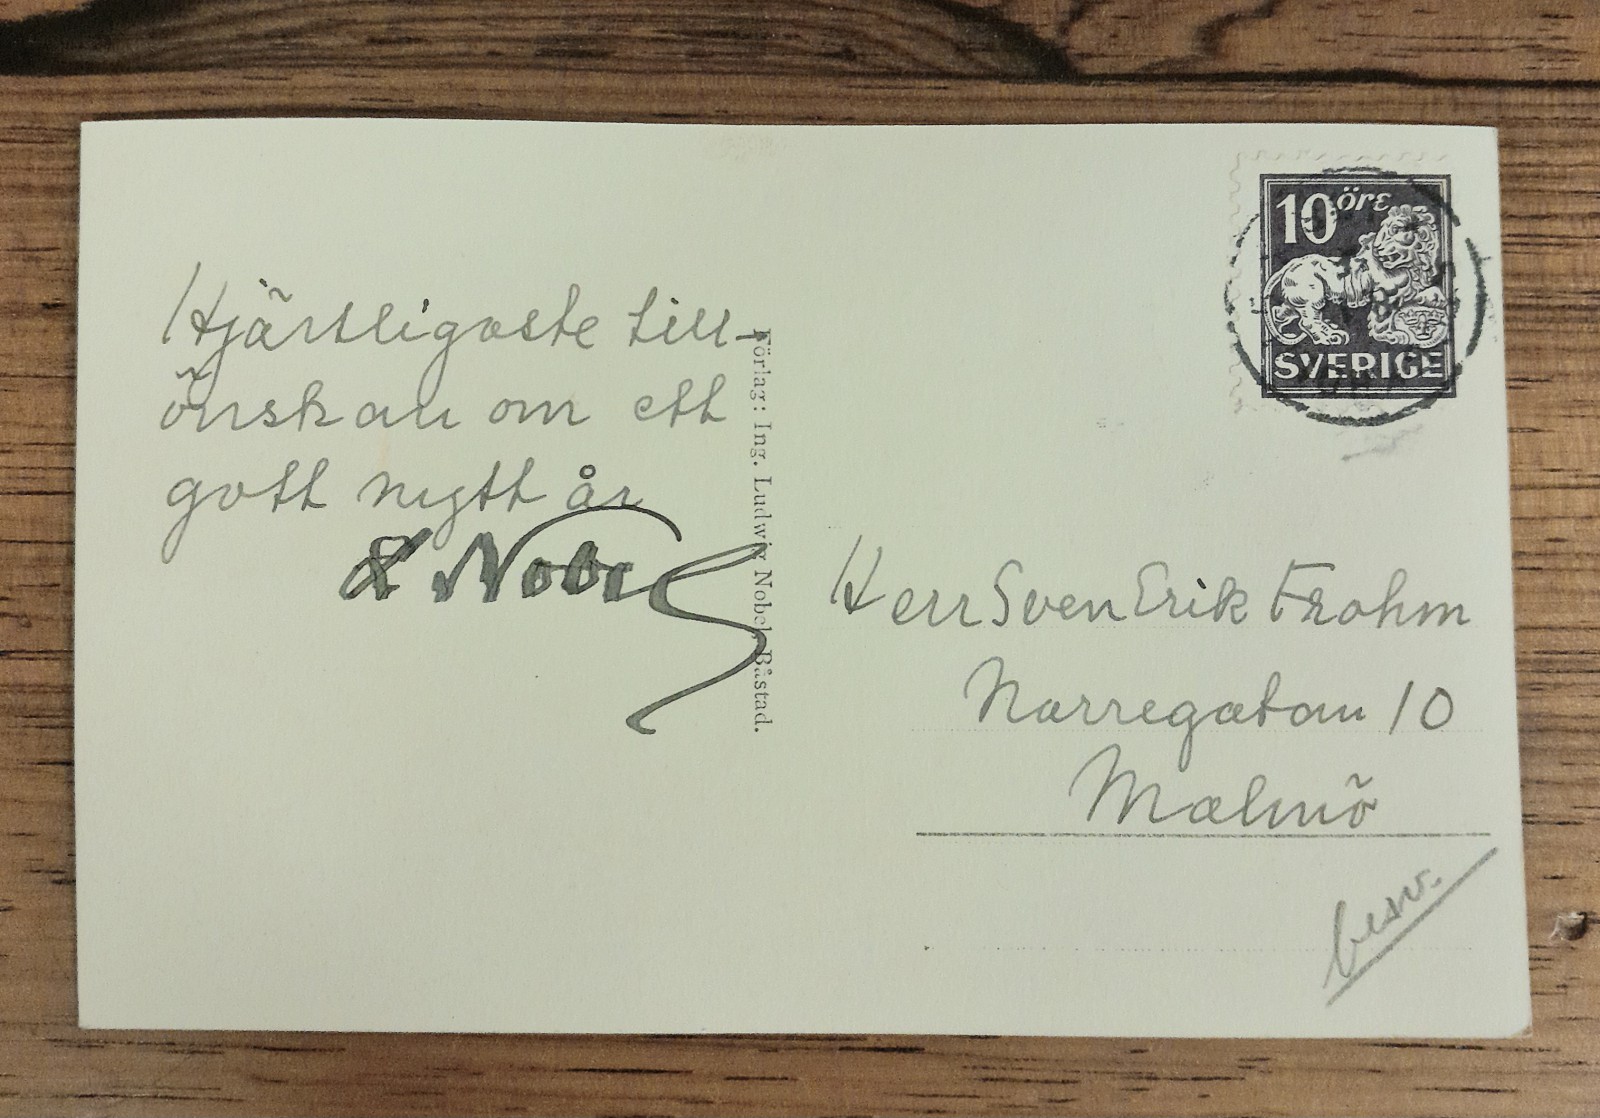 Hjärtligaste till-
önskan om ett
gott nytt år
L Nobel
Förlag: Ing. Ludwig Nobel, Båstad.
10 öre
SVERIGE
Herr Sven Erik Frohm
Norregatan 10
Malmö
besv.